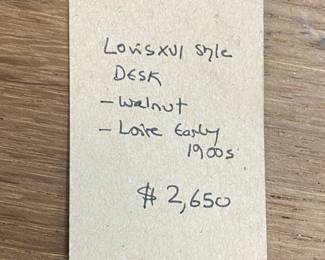 Louis XVI style
DESK
- Walnut
- Loire Early
1900s
$ 2,650